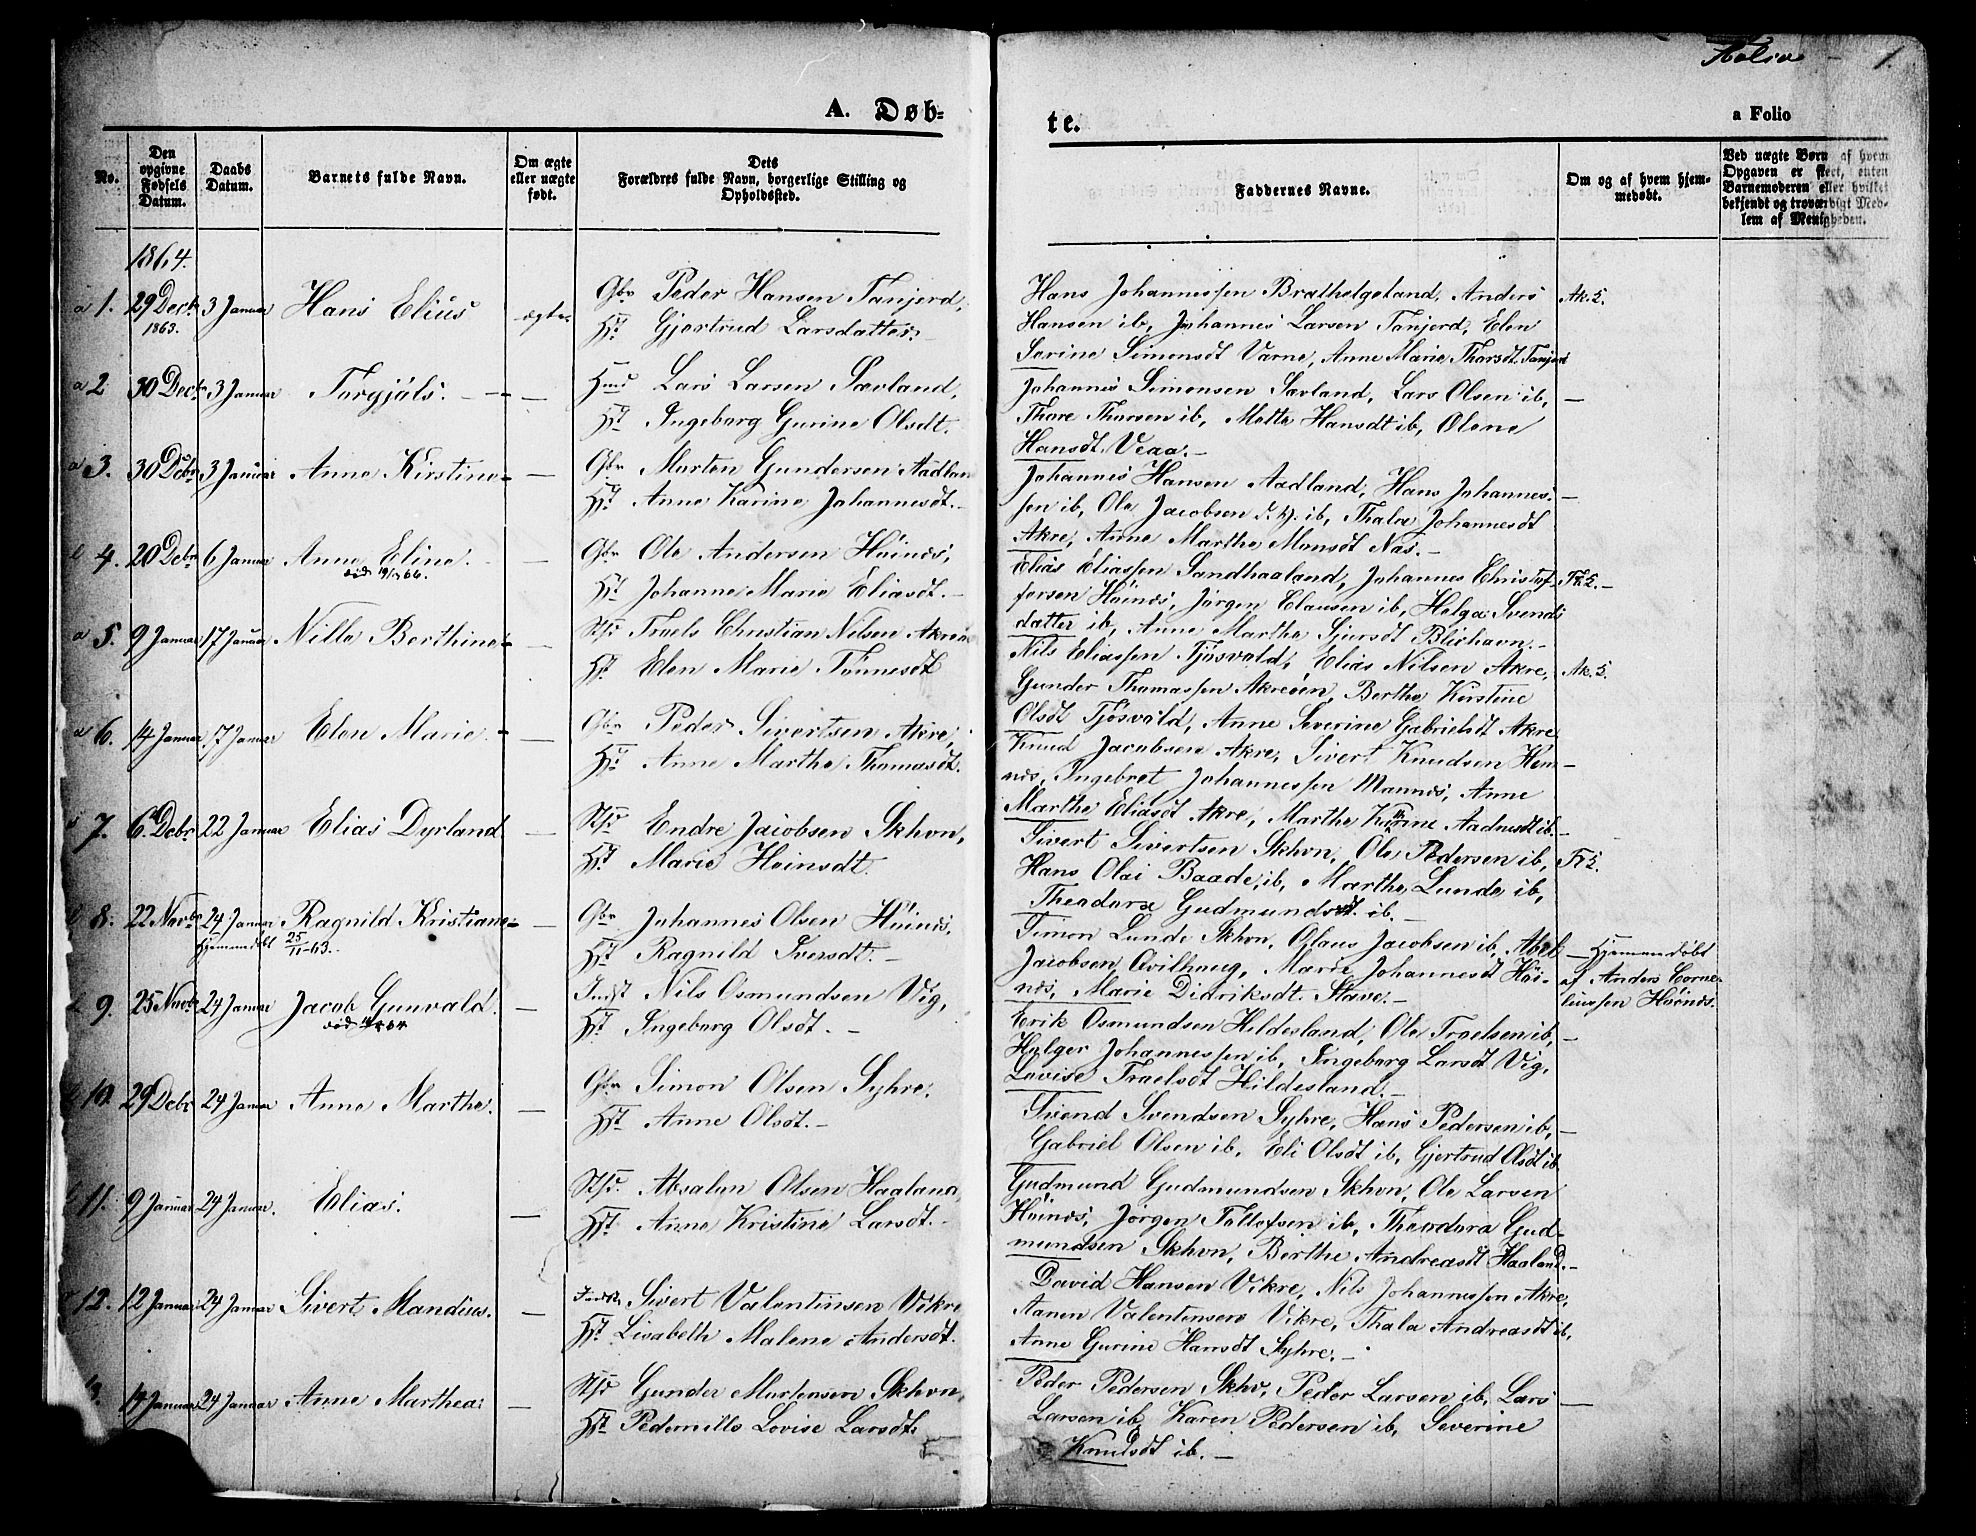 Folio 1.
A. Døb=
te.
a Folio
No.
Den opgivne Fødsels Datum.
Daabs Datum.
Barnets fulde Navn.
Om ægte eller uægte født.
Dets Forældres fulde Navn, borgerlige Stilling og Opholdssted.
Faddernes Navne.
Om og af hvem hjemmedøbt.
Ved uægte Børn af hvem Opgaven er skeet, enten Barnemoderen eller hvilket bekjendt og troværdigt Medlem af Menigheden.
1864.
a 1. 29 Decbr 1863. 3 Januar Hans Elius ægte. Gbr Peder Hansen Tanjerd,
Hst Gjertrud Larsdatter.
Hans Johannessen Brathelgeland, Anders Ak. S.
Hansen ib, Johannes Larsen Tanjerd, Elen
Serine Simonsdt Varne, Anne Marie Tharsdt Tanjerd
a 2 30 Decbr 3 Januar Torgjuls. — Hmd Lars Larsen Sævland,
Hst Ingeborg Gurine Olsdt.
Johannes Simonsen Sævland, Lars Olsen ib, —
Thore Thorsen ib, Mette Hansdt ib, Olene
Hansdt Veaa. —
a 3. 30 Debr 3 Januar Anne Kirstine — Gbr Morten Gundersen Aadland
Hst Anne Karine Johannesdt. —
Johannes Hansen Aadland, Hans Johannes- —
sen ib, Ole Jacobsen ib, Thala Johannesdt
Akre, Anne Marthe Monsdt Næs. —
4. 20 Debr 6 Januar Anne Eline. — Gbr Ole Andersen Höines,
død 19/ 66.
Hst Johanne Marie Eliasdt. —
Elias Eliassen Sandhaaland, Johannes Christof-
fersen Höines, Jørgen Clausen ib, Helga Svends
datter ib, Anne Marthe Sjursdt Blichavn. —
a 5. 9 Januar 17 Januar Nille Berthine — Traels Christian Nilsen Akreen
Hst Elen Marie Tönnesdt
Nils Eliassen Tjösvold, Elias Nilsen Akre, Ak. S.
Gunder Thomassen Akreöen, Berthe Kirstine
Olsdt Tjösvold, Anne Severine Gabrielsdt Akre
a 6. 14 Januar 17 Januar Elen Marie. — Gbr Peder Sivertsen Akre,
Hst Anne Marthe Thomasdt.
Knud Jacobsen Akre, Sivert Knudsen Hem- —
nes, Ingebret Johannessen Mannes, Anne
Marthe Eliasdt Akre, Marthe Karine Aadnesdt ib. —
7. 6 Debr 22 Januar Elias Dyrland — Endre Jacobsen Skhvn,
Hst Marie Heinsdt.
Sivert Sivertsen Skhvn, Ole Pedersen ib,
Hans Olai Baade, ib, Marthe Lunde ib,
Theodora Gudmundsdt ib. —
8. 22 Novbr 24 Januar Ragnild Kristiane — Gbr Johannes Olsen Höines,
Hjemmedøbt 25/11-63.
Hst Ragnild Iversdt. —
Simon Lunde Skhvn, Olaus Jacobsen ib, Abel — Hjemmedøbt
Jacobsen Qvilhaug, Marie Johannesdt Höi- af Anders Corne-
nes, Marie Didriksdt. Stave. — liussen Höines.
9. 25 Novbr 24 Januar Jacob Gunvald. — Indst Nils Osmundsen Vig,
død
Hst Ingeborg Olsdt. —
Erik Osmundsen Hildesland, Ole Traelsen ib, —
Holger Johannessen ib, Ingeborg Larsdt Vig,
Lovise Traelsdt Hildesland. —
10. 29 Debr 24 Januar Anne Marthe. — Gbr Simon Olsen Syhre,
Hst Anne Olsdt. —
Svend Svendsen Syhre, Hans Pedersen ib, —
Gabriel Olsen ib, Eli Olsdt ib, Gjertrud Olsdt ib
11. 9 Januar 24 Januar. Elias. — Absalon Olsen Haaland,
Hst. Anne Kristine Larsdt. —
Gudmund Gudmundsen Skhvn, Ole Larsen
Höines, Jørgen Tollofsen ib, Theodora Gud-
mundsen Skhvn, Berthe Andreasdt Haaland. —
12. 12 Januar 24 Januar Sivert Mandius. — Sivert Valentinsen Vikre
Hst. Lisabeth Malene Andersdt.
David Hansen Vikre, Nils Johannessen Akre,
Aanen Valentensen Vikre, Thala Andreasdt ib,
Anne Gurine Hansdt Syhre. —
14 Januar 24 Januar Anne Marthea: — Gunder Mortensen Skhvn,
Hst Pedernille Lovise Larsdt.
Peder Pedersen Skhv, Peder Larsen ib, Lars —
Larsen ib, Karen Pedersen ib, Severine
Knudsdt ib. —